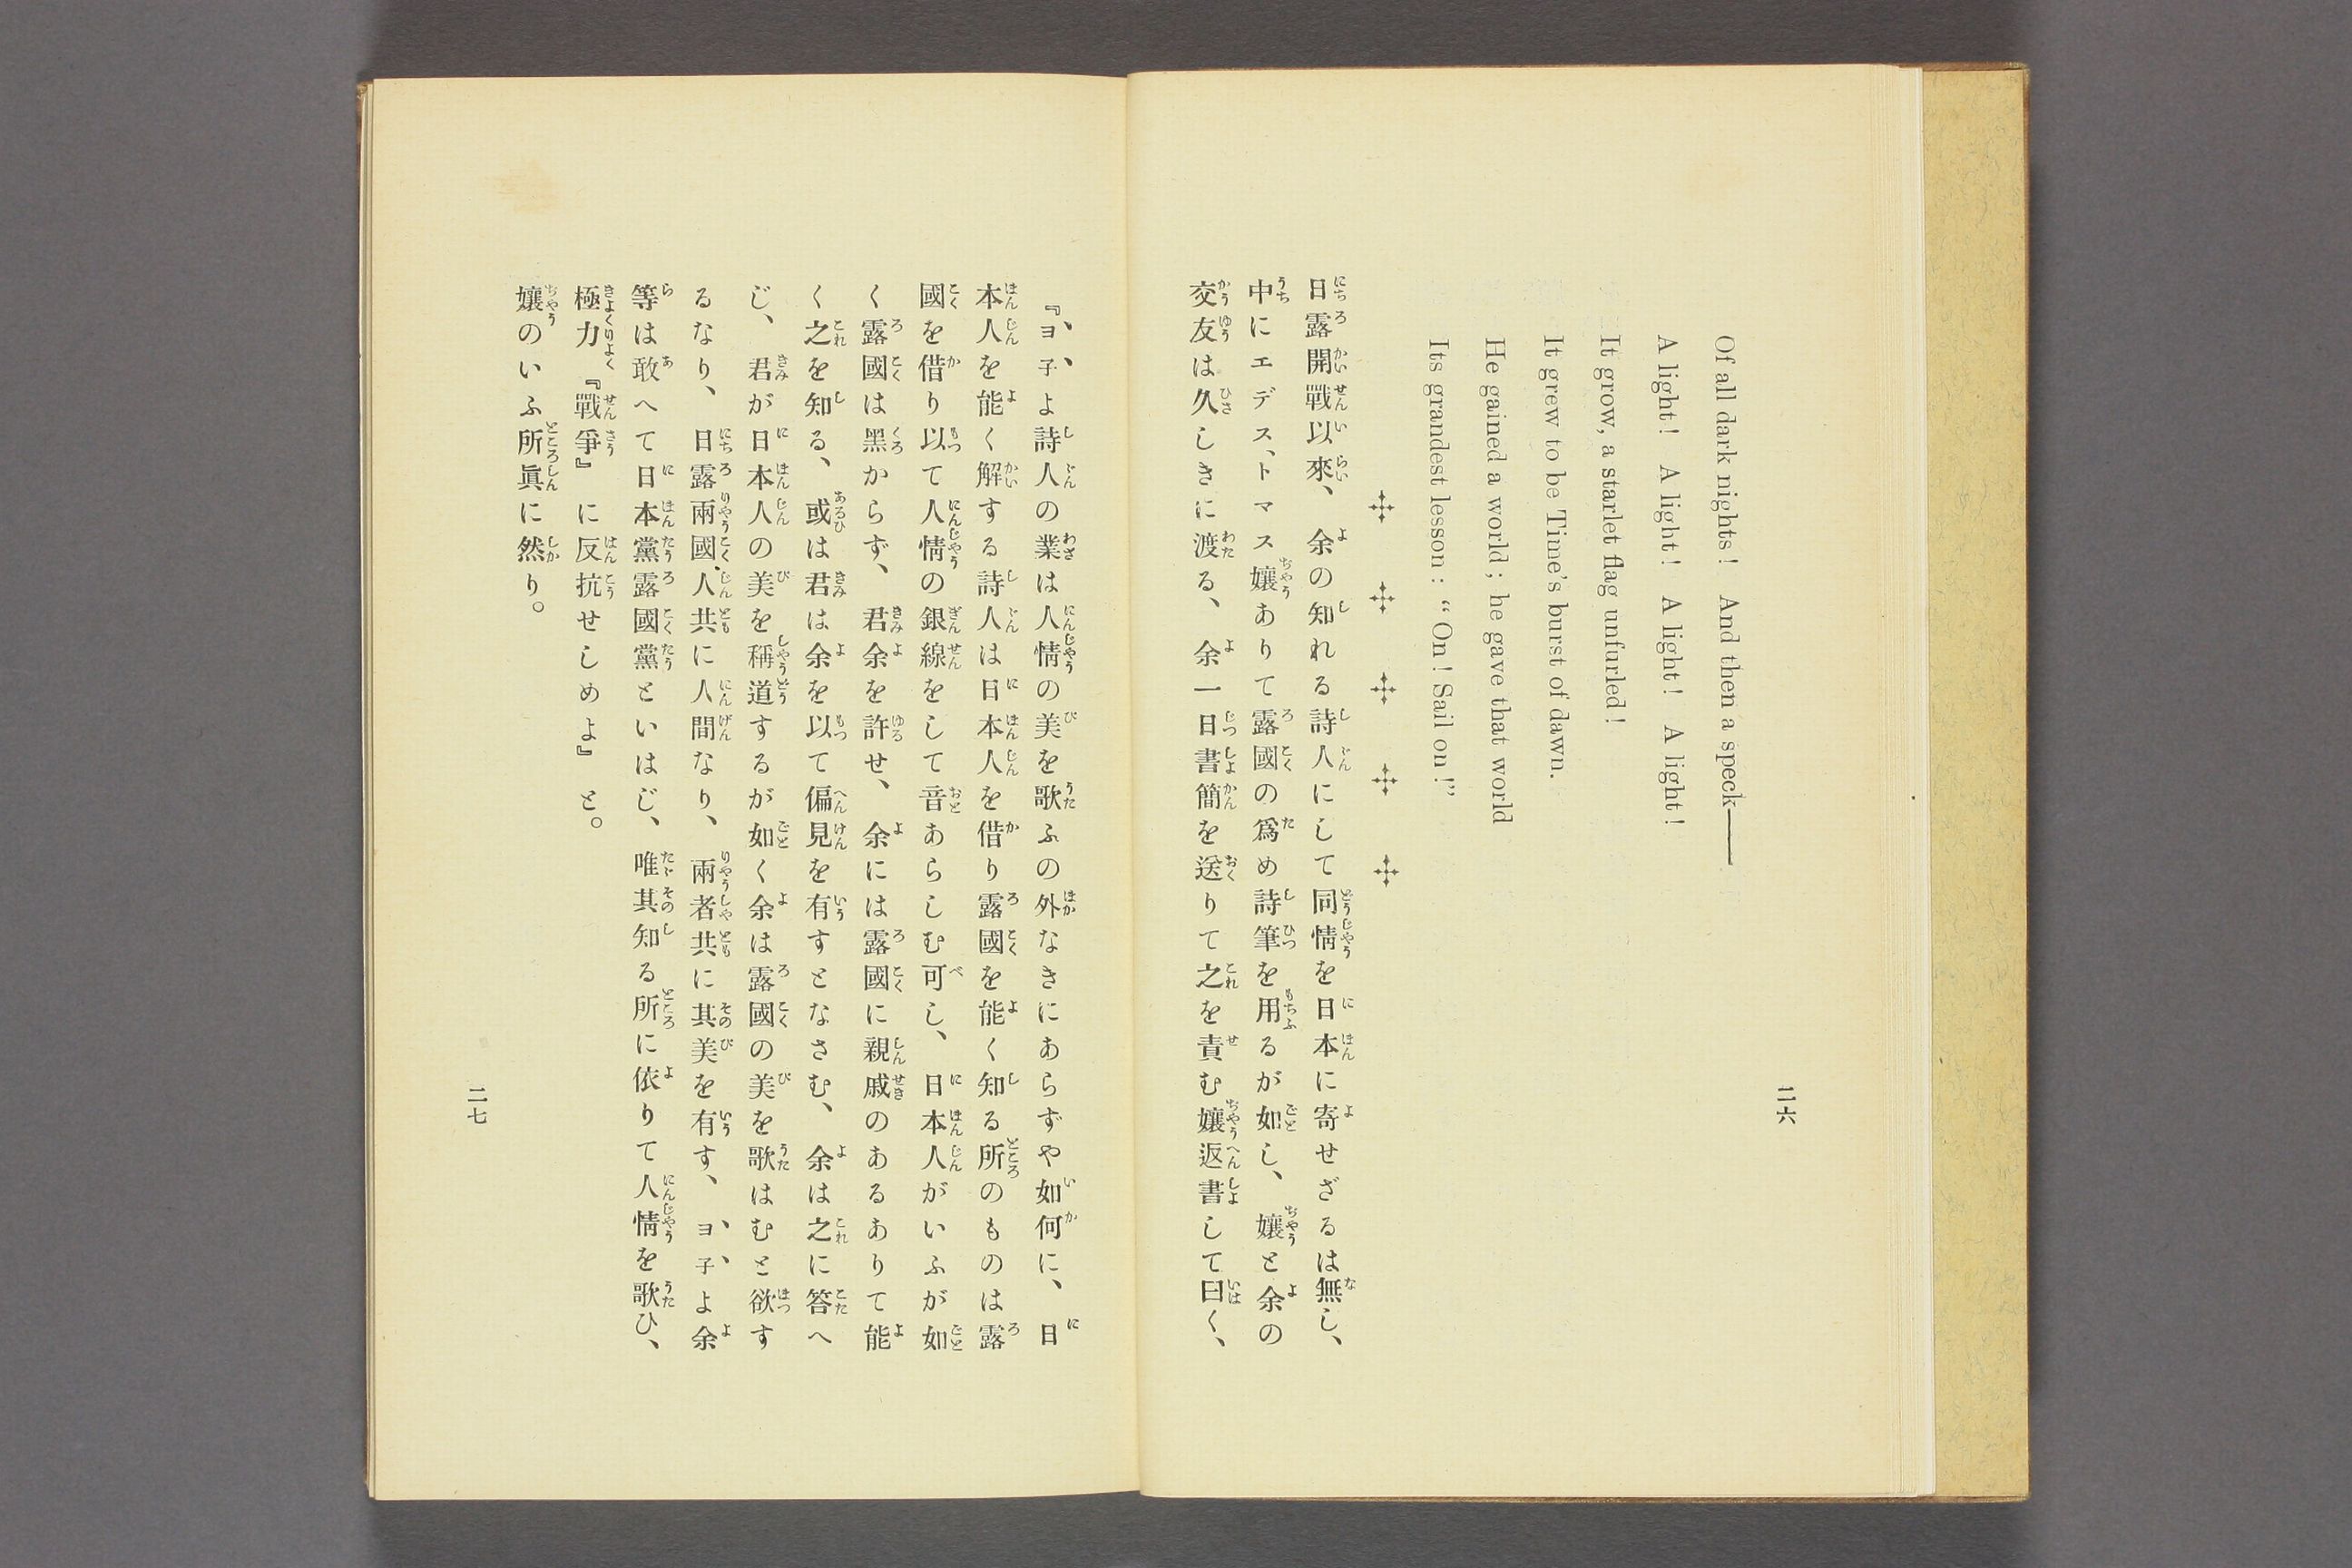 二六
Of all dark nights! And then a speck——
A light! A light! A light! A light!
It grow, a starlet flag unfurled!
It grew to be Time's burst of dawn.
He gained a world; he gave that world
Its grandest lesson: “On! Sail on!”
日露開戰以來、余の知れる詩人にして同情を日本に寄せざるは無し、
中にエデス、トマス孃ありて露國の爲め詩筆を用るが如し、孃と余の
交友は久しきに渡る、余一日書簡を送りて之を責む孃返書して曰く、
『ヨ子よ詩人の業は人情の美を歌ふの外なきにあらずや如何に、日
本人を能く解する詩人は日本人を借り露國を能く知る所のものは露
國を借り以て人情の銀線をして音あらしむ可し、日本人がいふが如
く露國は黑からず、君余を許せ、余には露國に親戚のあるありて能
く之を知る、或は君は余を以て偏見を有すとなさむ、余は之に答へ
じ、君が日本人の美を稱道するが如く余は露國の美を歌はむと欲す
るなり、日露兩國人共に人間なり、兩者共に其美を有す、ヨ子よ余
等は敢へて日本黨露國黨といはじ、唯其知る所に依りて人情を歌ひ、
極力『戰爭』に反抗せしめよ』と。
孃のいふ所眞に然り。
二七